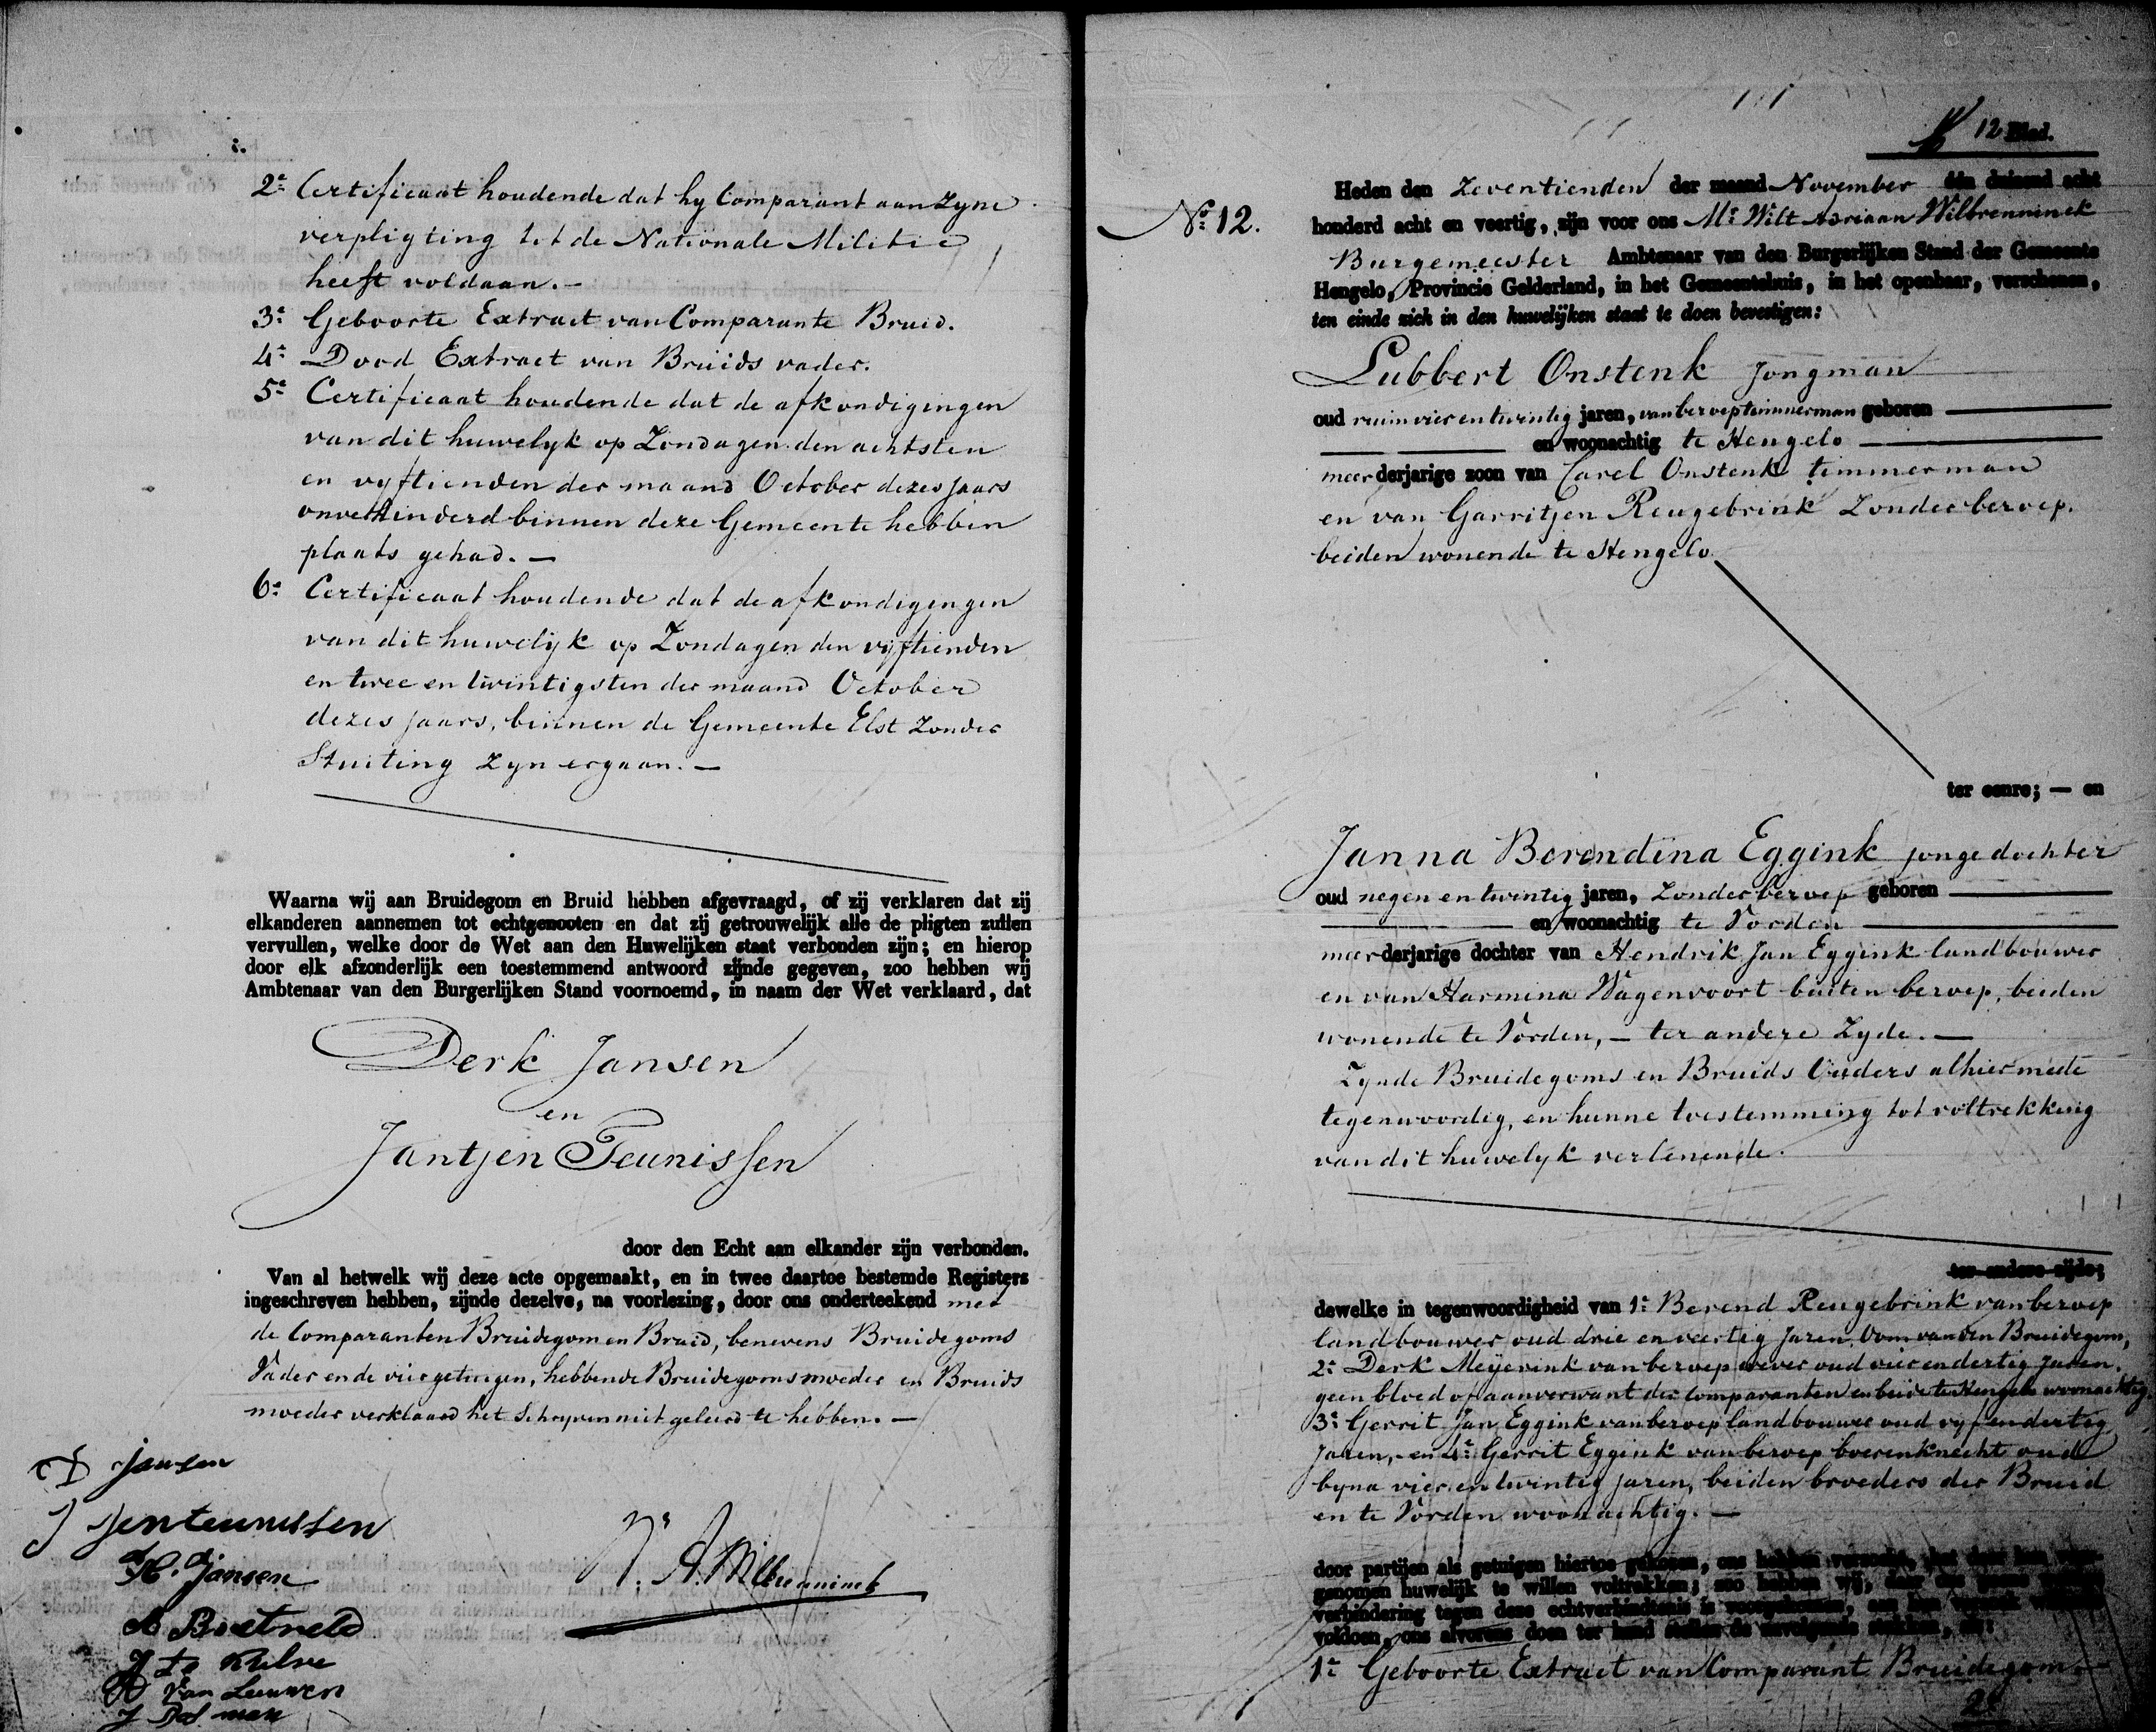 2e Certificaat houdende dat hy Comparant aan zyne
verpligting tot de Nationale Militie
heeft voldaan. —
3e Geboorte Extract van Comparante Bruid.
4e Dood Extract van Bruids vader.
5e Certificaat houdende dat de afkondigingen
van dit huwelyk op Zondagen den achtsten
en vyftienden der maand October dezes jaars
onverhinderd binnen deze Gemeente hebben
plaats gehad. —
6e Certificaat houdende dat de afkondigingen
van dit huwelijk op Zondagen den vijftienden
en twee en twintigsten der maand October
dezes jaars, binnen de Gemeente Elst zonder
Stuiting zyn ergaan. —
Waarna wij aan Bruidegom en Bruid hebben afgevraagd, of zij verklaren dat zij
elkanderen aannemen tot echtgenooten en dat zij getrouwelijk alle de pligten zullen
vervullen, welke door de Wet aan den Huwelijken staat verbonden zijn; en hierop
door elk afzonderlijk een toestemmend antwoord zijnde gegeven, zoo hebben wij
Ambtenaar van den Burgerlijken Stand voornoemd, in naam der Wet verklaard, dat
Derk Jansen
en
Jantjen Teunissen
door den Echt aan elkander zijn verbonden.
Van al hetwelk wij deze acte opgemaakt, en in twee daartoe bestemde Registers
ingeschreven hebben, zijnde dezelve, na voorlezing, door ons onderteekend met
de Comparanten Bruidegom en Bruid, benevens Bruidegoms
Vader en de vier getuigen, hebbende Bruidegoms moeder en Bruids
moeder verklaard het Schryven niet geleerd te hebben. —
D Jansen
J Jenteunissen
H. Jansen
W. A. Wilbrenninck
van Leuwen
12 Blad.
No. 12.
Heden den zeventienden der maand November één duizend acht
honderd acht en veertig, zijn voor ons Mr Wilt Adriaan Wilbrenninck
Burgemeester Ambtenaar van den Burgerlijken Stand der Gemeente
Hengelo, Provincie Gelderland, in het Gemeentehuis, in het openbaar, verschenen,
ten einde zich in den huwelijken staat te doen bevestigen:
Lubbert Onstenk jongman
oud ruim vier en twintig jaren, van beroep timmerman geboren
en woonachtig te Hengelo
meerderjarige zoon van Carel Onstenk timmerman
en van Garritjen Reugebrink zonder beroep.
beiden wonende te Hengelo.
ter eenre; — en
Janna Berendina Eggink jonge dochter
oud negen en twintig jaren, zonder beroep geboren
en woonachtig te Vorden
meerderjarige dochter van Hendrik Jan Eggink landbouwer
en van Harmina Wagenvoort buiten beroep, beiden
wonende te Vorden, — ter andere zyde. —
Zynde Bruidegoms en Bruids Ouders alhier mede
tegenwoordig, en hunne toestemming tot voltrekking
van dit huwelyk verleenende.
ter andere zijde;
dewelke in tegenwoordigheid van 1e Berend Reugebrink van beroep
landbouwer oud drie en veertig jaren Oom van den Bruidegom,
2e Derk Meyerink van beroep wever oud vier en dertig jaren.
geen bloed of aanverwant der comparanten en beide te Hengelo woonachtig
3e Gerrit Jan Eggink van beroep landbouwer oud vyf en dertig
jaren, en 4e Gerrit Eggink van beroep boerenknecht oud
byna vier en twintig jaren, beiden broeders der Bruid
en te Vorden woonachtig. —
door partijen als getuigen hiertoe gekozen, ons hebben verzocht,
genomen huwelijk te willen voltrekken; zoo hebben wij,
verhindering tegen deze echtverbindtenis is voorgekomen, aan
voldoen, ons alvorens doen ter hand stellen de navolgende stukken, als:
1e Geboorte Extract van Comparant Bruidegom. —
2e